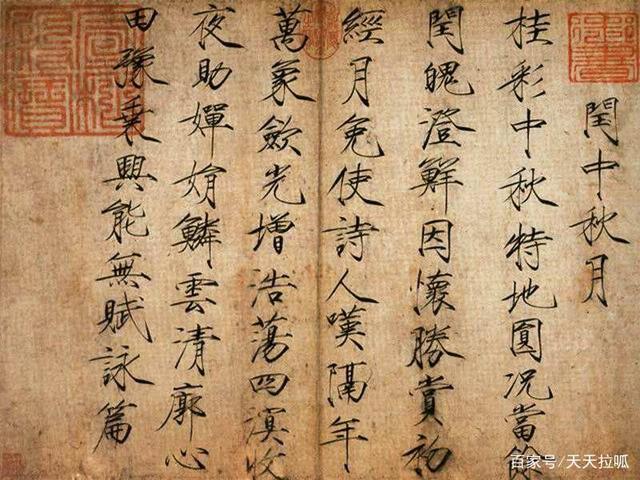 閏中秋月
桂彩中秋特地圓况當餘
閏魄澄鮮因懷勝賞初
經月免使詩人嘆隔年
萬象歛光增浩蕩四溟收
夜助嬋娟鱗雲清廓心
田豫乗興能無賦詠篇
百家号/天天拉呱